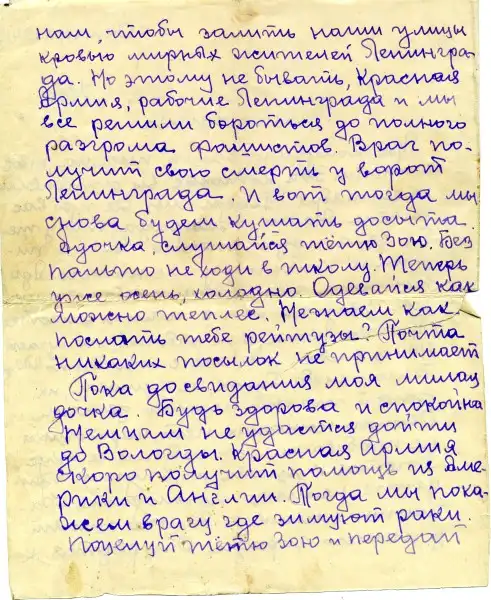 нам, чтобы залить наши улицы
кровью мирных жителей Ленингра-
да. Но этому не бывать, Красная
Армия, рабочие Ленинграда и мы
все решили бороться до полного
разгрома фашистов. Враг по-
лучит свою смерть у ворот
Ленинграда. И вот тогда мы
снова будем кушать досыта.
Адочка, слушайся тётю Зою. Без
пальто не ходи в школу. Теперь
уже осень, холодно. Одевайся как
можно теплее. Незнаем как
послать тебе рейтузы? Почта
никаких посылок не принимает
Пока до свидания моя милая
дочка. Будь здорова и спокойна
Немцам не удастся дойти
до Вологды. Красная Армия
скоро получит помощь из Аме-
рики и Англии. Тогда мы пока-
жем врагу где зимуют раки.
Поцелуй тётю Зою и передай